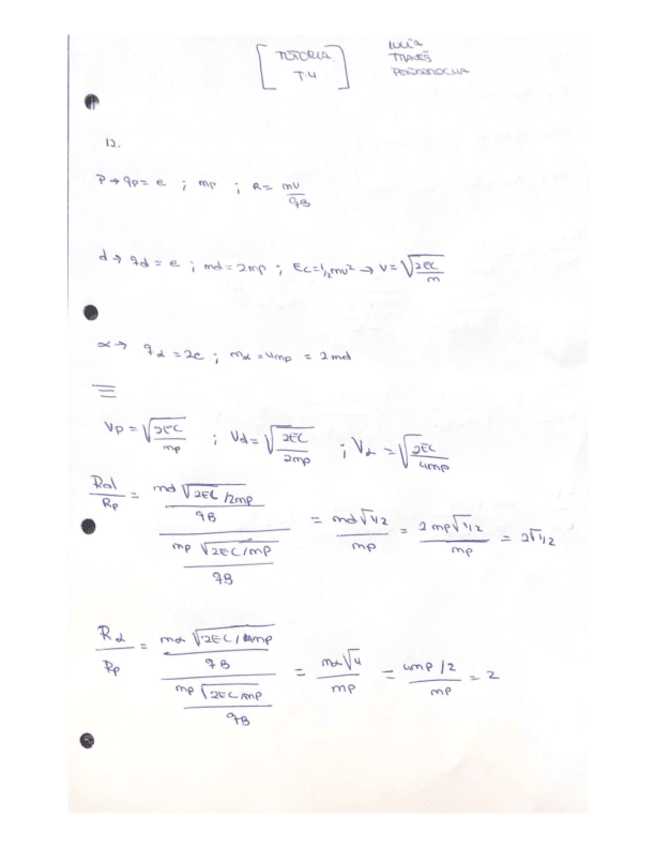 TUTORIA
T.4
LUCÍA
12.
P → qp = e ; mp ; R = mv/qB
d → qd = e ; md = 2mp ; Ec = 1/2mv² → v = √(2Ec/m)
α → qα = 2e ; mα = 4mp = 2md
Vp = √(2EC/mp) ; Vd = √(2EC/2mp) ; Vα = √(2EC/4mp)
Rd/Rp = (md √(2EC/2mp) / qB) / (mp √(2EC/mp) / qB) = md√1/2 / mp = 2mp√1/2 / mp = 2√1/2
Rα/Rp = (mα √(2EC/4mp) / qB) / (mp √(2EC/mp) / qB) = mα√4 / mp = 4mp/2 / mp = 2